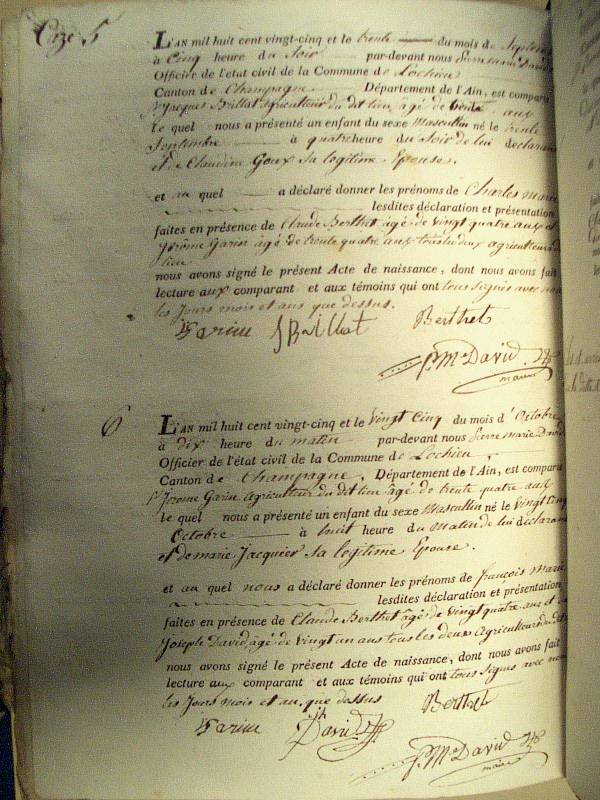 5
L'AN mil huit cent vingt-cinq et le trente du mois de Septembre
à Cinq heure du Soir par-devant nous Pierre marie David
Officier de l'état civil de la Commune de Lochieu
Canton de Champagne Département de l'Ain, est comparu
Sr Jacques Brillat agriculteur du dit lieu âgé de trente ans
le quel nous a présenté un enfant du sexe Masculin né le trente
Septembre à quatre heure du Soir de lui déclarant
et de Claudine Goux sa legitime Epouse.
et au quel a déclaré donner les prénoms de Charles Marie
lesdites déclaration et présentation
faites en présence de Claude Berthet âgé de Vingt quatre aux et
Jérôme Garin âgé de trente quatre aux tous les deux agriculteurs du
lieu
nous avons signé le présent Acte de naissance, dont nous avons fait
lecture aux comparant et aux témoins qui ont tous signés avec nous
les Jours mois et ans que dessus.
Garin JBrillat Berthet
P. Me David
maire
6
L'AN mil huit cent vingt-cinq et le Vingt Cinq du mois d'Octobre
à dix heure du matin par-devant nous Pierre marie David
Officier de l'état civil de la Commune de Lochieu
Canton de Champagne, Département de l'Ain, est comparu
Sr Jerome Garin Agriculteur du dit lieu âgé de trente quatre aux
le quel nous a présenté un enfant du sexe Masculin né le Vingt Cinq
Octobre à huit heure du Matin de lui déclarant
et de marie Jacquier sa legitime Epouse.
et au quel nous a déclaré donner les prénoms de françois Marie
lesdites déclaration et présentation
faites en présence de Claude Berthet âgé de Vingt quatre aux et de
Joseph David âgé de Vingt un ans tous les deux Agriculteurs du dit
nous avons signé le présent Acte de naissance, dont nous avons fait
lecture aux comparant et aux témoins qui ont tous signés avec nous
les Jours mois et an que dessus
Garin David Berthet
P. Me David
maire